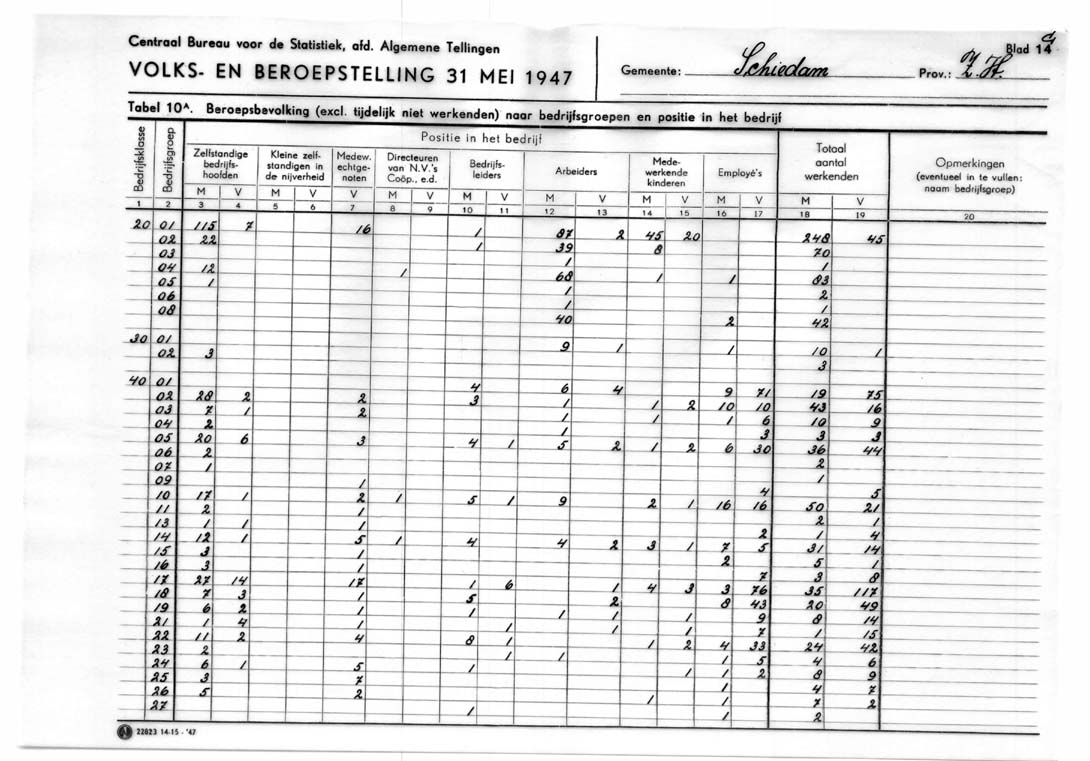 Centraal Bureau voor de Statistiek, afd. Algemene Tellingen
VOLKS- EN BEROEPSTELLING 31 MEI 1947
Gemeente: Schiedam
Prov.: Z.H.
Blad 14
Tabel 10A. Beroepsbevolking (excl. tijdelijk niet werkenden) naar bedrijfsgroepen en positie in het bedrijf
Bedrijfsklasse
Bedrijfsgroep
Positie in het bedrijf
Zelfstandige bedrijfs-hoofden
Kleine zelf-standigen in de nijverheid
Medew. echtge-noten
Directeuren van N.V.'s Coöp., e.d.
Bedrijfs-leiders
Arbeiders
Mede-werkende kinderen
Employé's
Totaal aantal werkenden
Opmerkingen (eventueel in te vullen: naam bedrijfsgroep)
M V M V V M V M V M V M V M V M V
1 2 3 4 5 6 7 8 9 10 11 12 13 14 15 16 17 18 19 20
20 01 115 7 16 1 87 2 45 20 248 45
02 22 1 39 8 70
03 1 1
04 12 1 68 1 1 83
05 1 1 2
06 1 1
08 40 2 42
30 01 9 1 1 10 1
02 3 3
40 01 4 6 4 9 71 19 75
02 28 2 2 3 1 1 2 10 10 43 16
03 7 1 2 1 1 1 6 10 9
04 2 1 3 3 3
05 20 6 3 4 1 5 2 1 2 6 30 36 44
06 2 2
07 1 1
09 1 4 5
10 17 1 2 1 5 1 9 2 1 16 16 50 21
11 2 1 2 1
13 1 1 1 2 1 4
14 12 1 5 1 4 4 2 3 1 7 5 31 14
15 3 1 2 5 1
16 3 1 7 3 8
17 27 14 17 1 6 1 4 3 3 76 35 117
18 7 3 1 5 2 8 43 20 49
19 6 2 1 1 1 1 1 9 8 14
21 1 4 1 1 1 1 7 1 15
22 11 2 4 8 1 1 2 4 33 24 42
23 2 1 1 1 5 4 6
24 6 1 5 1 1 1 2 8 9
25 3 7 1 4 7
26 5 2 1 1 7 2
27 1 1 2
22823 14-15 - '47